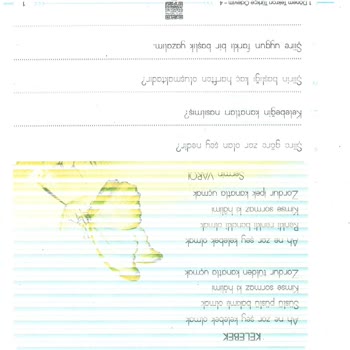 KELEBEK
Ah ne zor şey kelebek olmak
Süslü püslü bidamli olmak
Kimse sormaz ki halini
Zordur tülden kanatla uçmak
Ah ne zor şey kelebek olmak
Renkli renkli benekli olmak
Kimse sormaz ki halini
Zordur ipek kanatla uçmak
Sermin
Şiire göre zor olan şey nedir?
Kelebeğin kanatları nasılmış?
Şiirin başlığı kaç harften oluşmaktadır?
Şiire uygun farklı bir başlık yazalım.
1